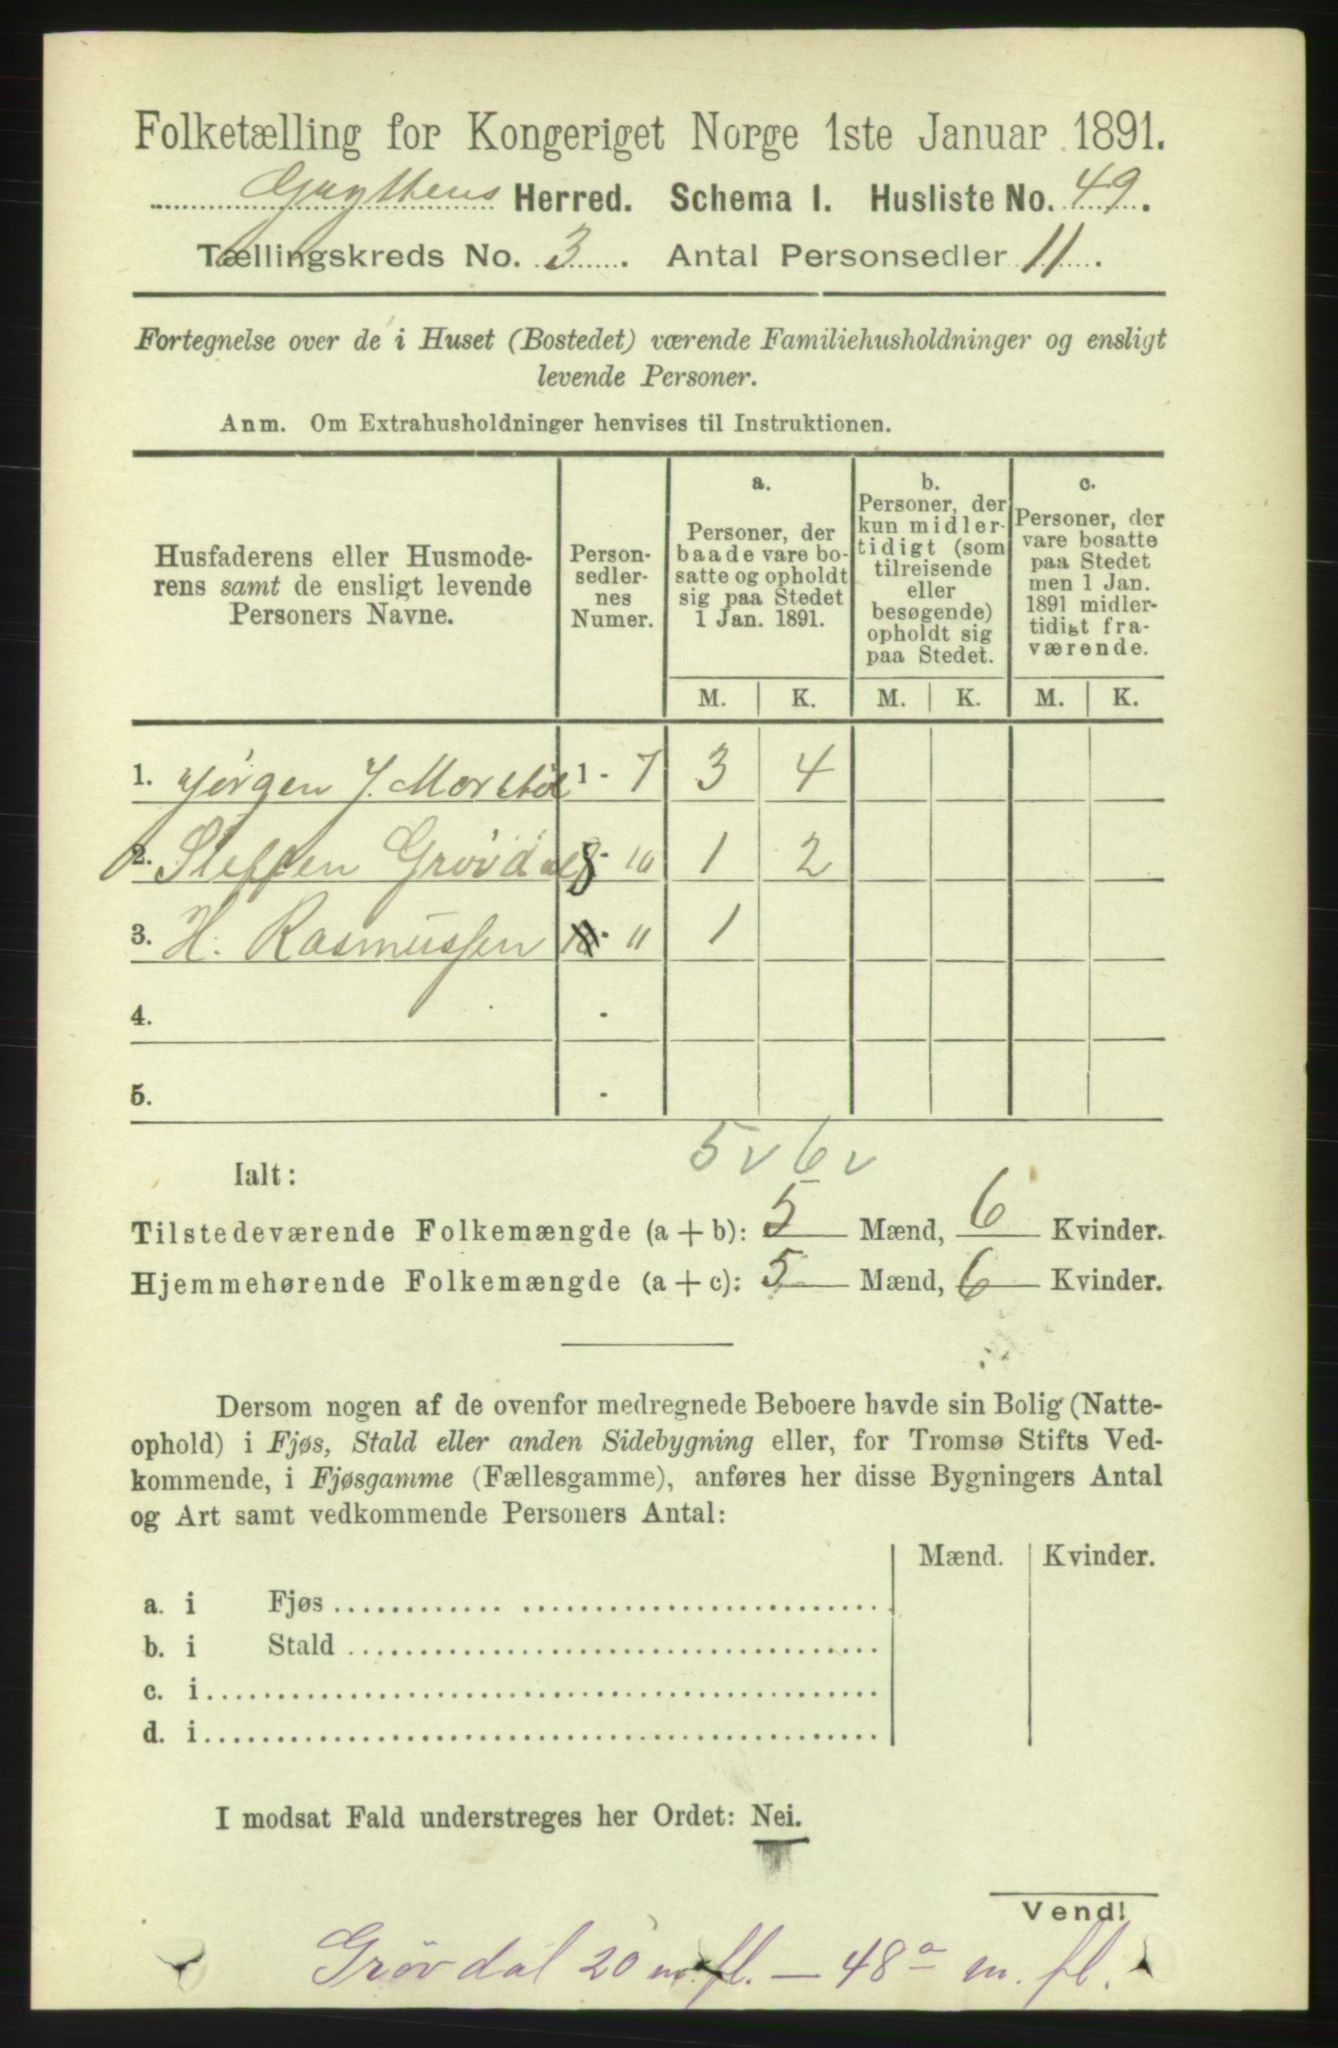 Folketælling for Kongeriget Norge 1ste Januar 1891.
Herred. Schema I. Husliste No. 49.
Tællingskreds No. 3. Antal Personsedler 11.
Fortegnelse over de i Huset (Bostedet) værende Familiehusholdninger og ensligt
levende Personer.
Anm. Om Extrahusholdninger henvises til Instruktionen.
Husfaderens eller Husmode-
rens samt de ensligt levende
Personers Navne.
Person-
sedler-
nes
Numer.
a.
Personer, der
baade vare bo-
satte og opholdt
sig paa Stedet
1 Jan. 1891.
b.
Personer, der
kun midler-
tidigt (som
tilreisende
eller
besøgende)
opholdt sig
paa Stedet.
c.
Personer, der
vare bosatte
paa Stedet
men 1 Jan.
1891 midler-
tidigt fra-
værende.
M. K. M. K. M. K.
1. Jørgen J. Morstøl 1 - 7 3 4
2. Steffen Grøvdal 8 - 10 1 2
3. H. Rasmussen - 11 1
4. -
5. -
5 v 6 v
Ialt:
Tilstedeværende Folkemængde (a + b): 5 Mænd, 6 Kvinder.
Hjemmehørende Folkemængde (a + c): 5 Mænd, 6 Kvinder.
Dersom nogen af de ovenfor medregnede Beboere havde sin Bolig (Natte-
ophold) i Fjøs, Stald eller anden Sidebygning eller, for Tromsø Stifts Ved-
kommende, i Fjøsgamme (Fællesgamme), anføres her disse Bygningers Antal
og Art samt vedkommende Personers Antal:
Mænd. Kvinder.
a. i Fjøs
b. i Stald
c. i
d. i
I modsat Fald understreges her Ordet: Nei.
Vend!
Grövdal 20 m. fl. — 48a m. fl.